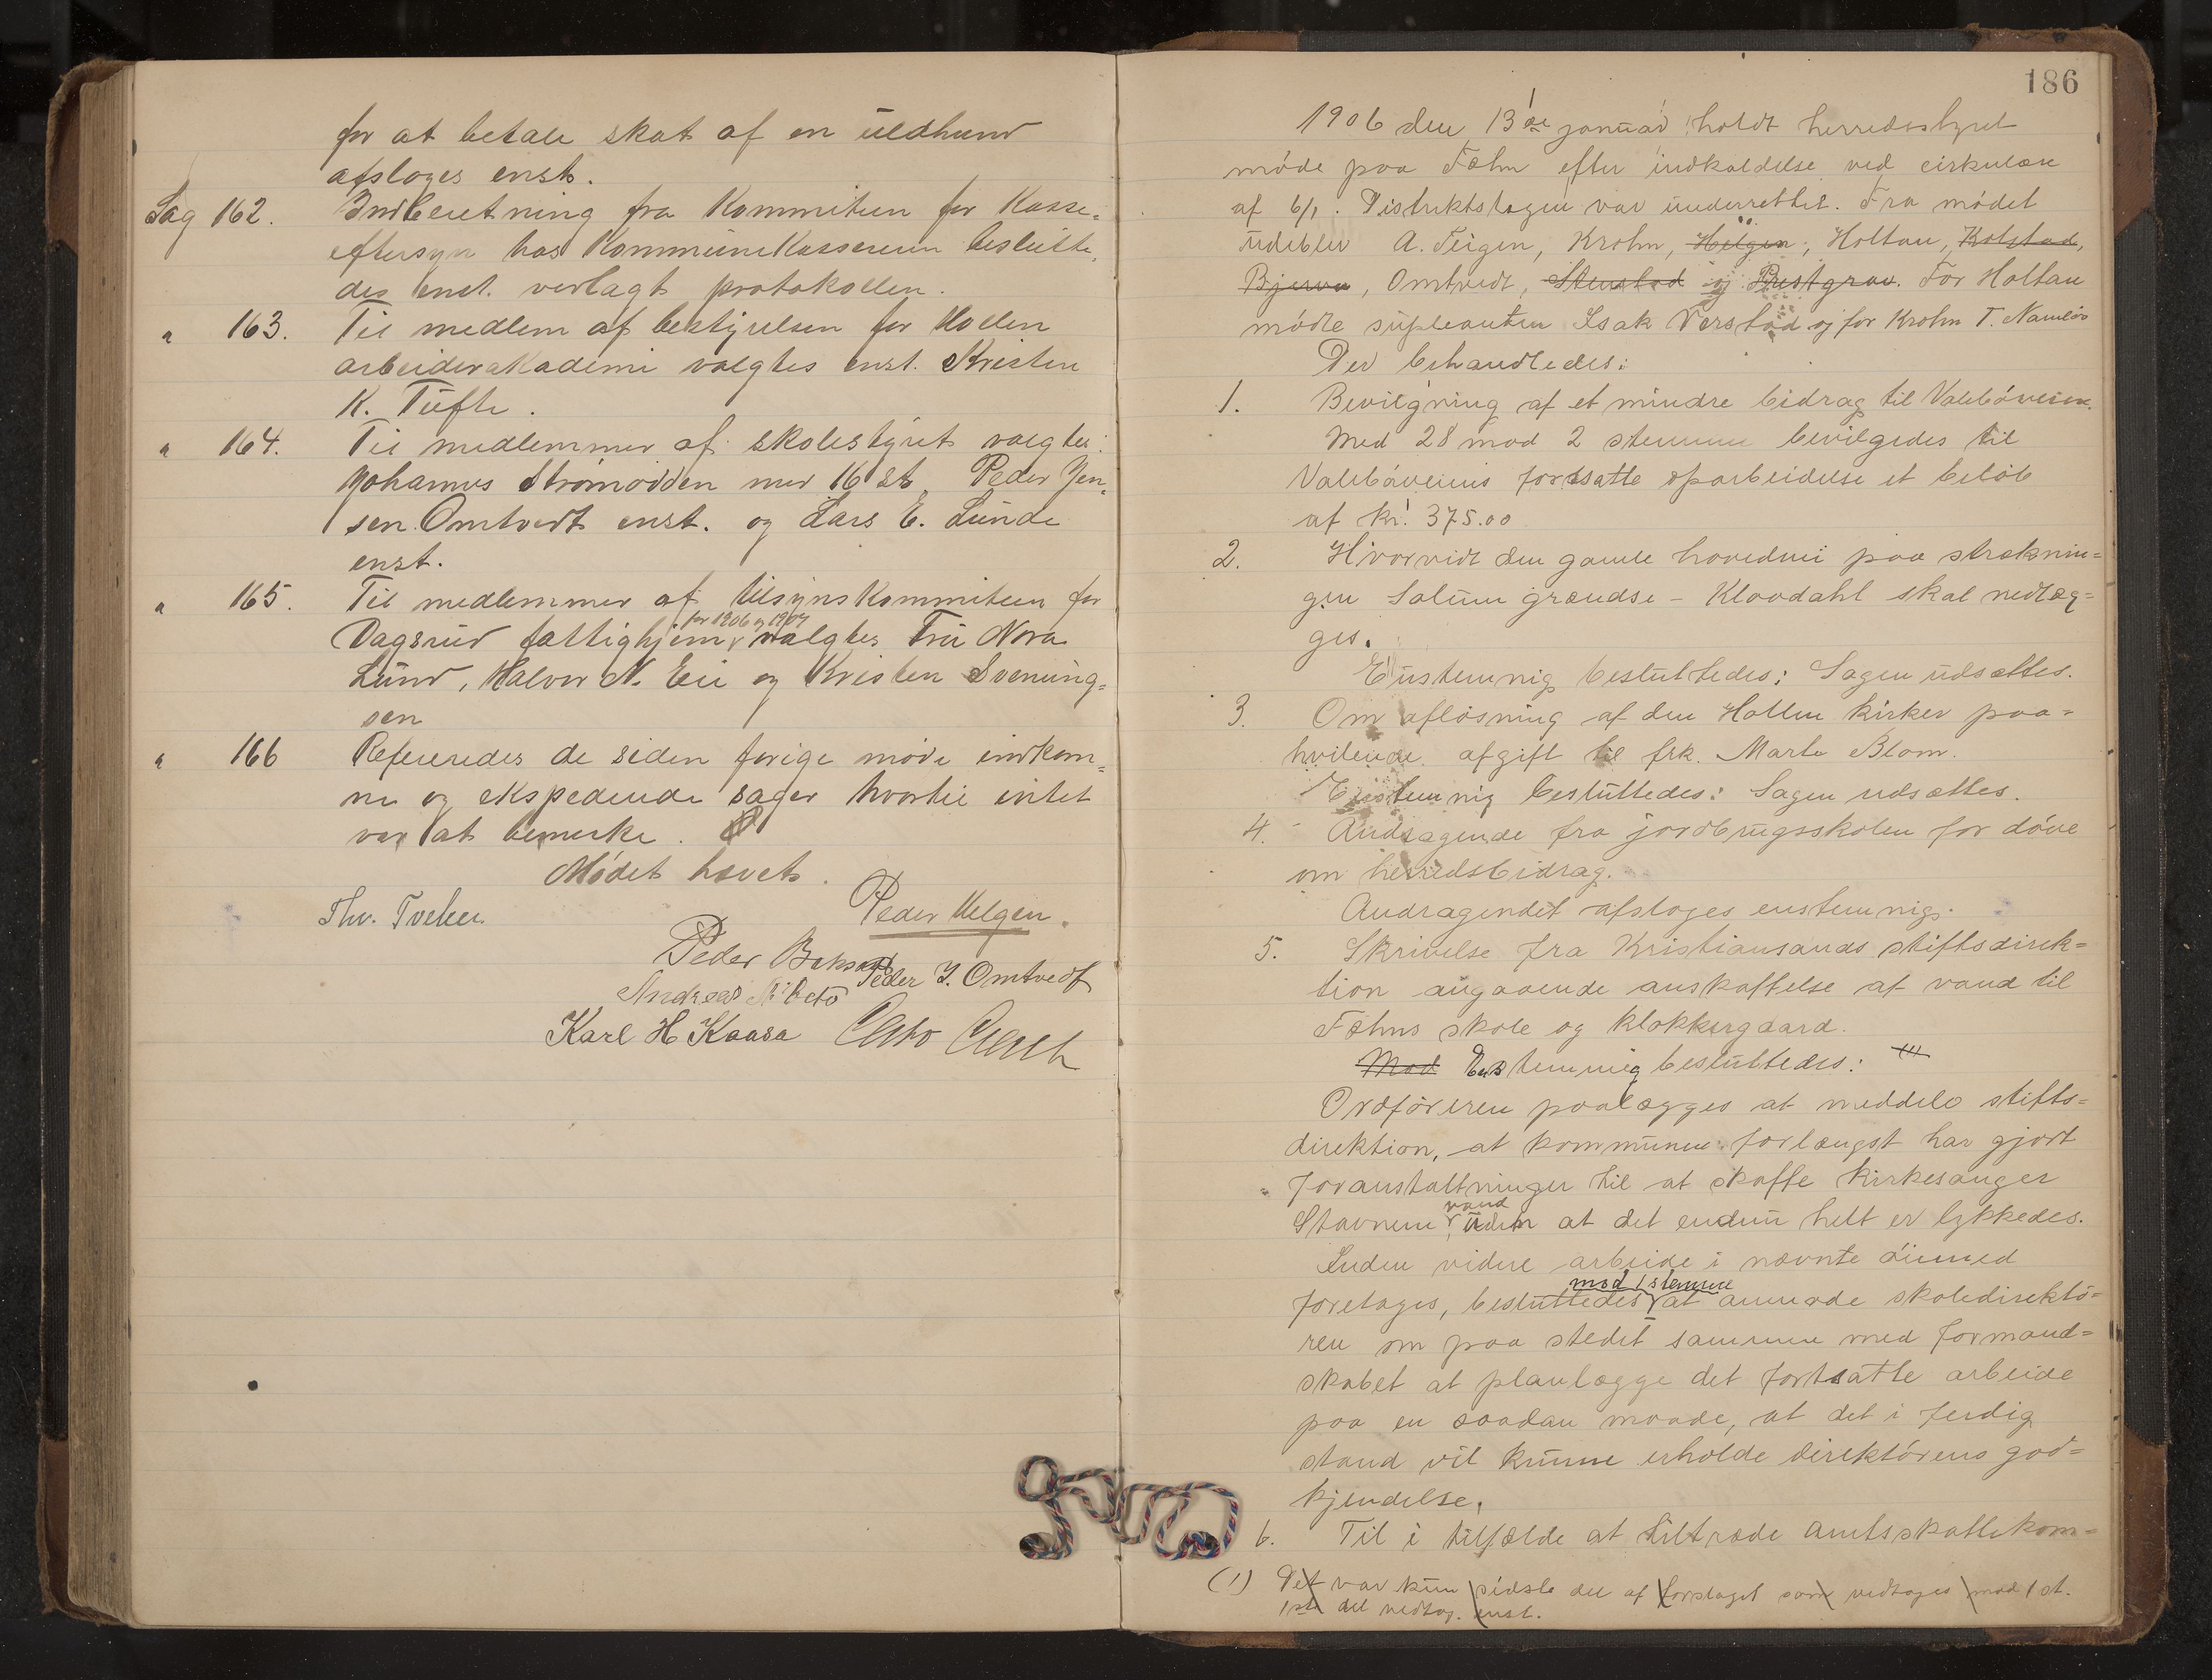 for at betale skat af en uldhund
afsloges enst.
Sag 162. Indberetning fra Kommiteen for Kasse-
eftersyn hos Kommunekassereren beslutte-
des enst. vedlagt protokollen.
" 163. Til medlem af bestyrelsen for Hollen
arbeiderakademi valgtes enst. Kristen
K. Tufte.
" 164. Til medlemmer af skolestyret valgtes:
Johannes Strømodden med 16 st, Peder Jen-
sen Omtvedt enst. og Lars E. Lunde
enst.
" 165. Til medlemmer af tilsynskommiteen for
for 1906 og 1907
Dagsrud fattighjem valgtes Fru Nora
Lund, Halvor N. Eie og Kristen Svenung-
sen
" 166 Refereredes de siden forige møde indkom-
ne og ekspederede sager hvortil intet
var at bemerke.
Mødet hævet.
Thv. Tveten Peder Helgen.
Peder
Peder J. Omtvedt
Andreas
Karl H Kaasa
186
1906 den 13de januar holdt herredsstyret
møde paa Fæhn efter indkaldelse ved cirkulære
af 6/1. Distriktslægen var underrettet. Fra mødet
udeblev A. Teigen, Krohn, Helgen, Holtan, Kolstad,
Bjerva, Omtvedt, Stenstad og Prestgrav. For Holtan
mødte supleanten Isak Verstad og for Krohn T. Namløs
Der behandledes:
1. Bevilgning af et mindre bidrag til Valebøveien.
Med 28 mod 2 stemmer bevilgedes til
Valebøveiens fortsatte oparbeidelse et beløb
af kr. 375.00
2. Hvorvidt den gamle hovedvei paa stræknin-
gen Solum grændse - Klovdahl skal nedlæg-
ges.
Enstemmig besluttedes: Sagen udsættes.
3. Om afløsning af den Hollen kirker paa-
hvilende afgift til frk. Marte Blom.
Enstemmig besluttedes: Sagen udsættes.
4. Andragende fra jordbrugsskolen for døve
om herredsbidrag.
Andragendet afsloges enstemmig.
5. Skrivelse fra Kristiansands stiftsdirek-
tion angaaende anskaffelse af vand til
Fæhns skole og klokkergaard.
Mod Enstemmig besluttedes:
Ordføreren paalægges at meddele stifts-
direktion, at kommunen forlængst har gjort
foranstaltninger til at skaffe kirkesanger
vand
Stavnem uden at det endnu helt er lykkedes.
Inden videre arbeide i nævnte øiemed
mod 1 stemme
foretages, besluttedes at anmode skoledirektø-
ren om paa stedet sammen med formand-
skabet at planlægge det fortsatte arbeide
paa en saadan maade, at det i ferdig
stand vil kunne erholde direktørens god-
kjendelse.
6. Til i tilfælde at tiltræde amtsskattekom-
(1) Det var kun sidste del af forslaget som vedtoges mod 1 st.
1ste del vedtog. enst.